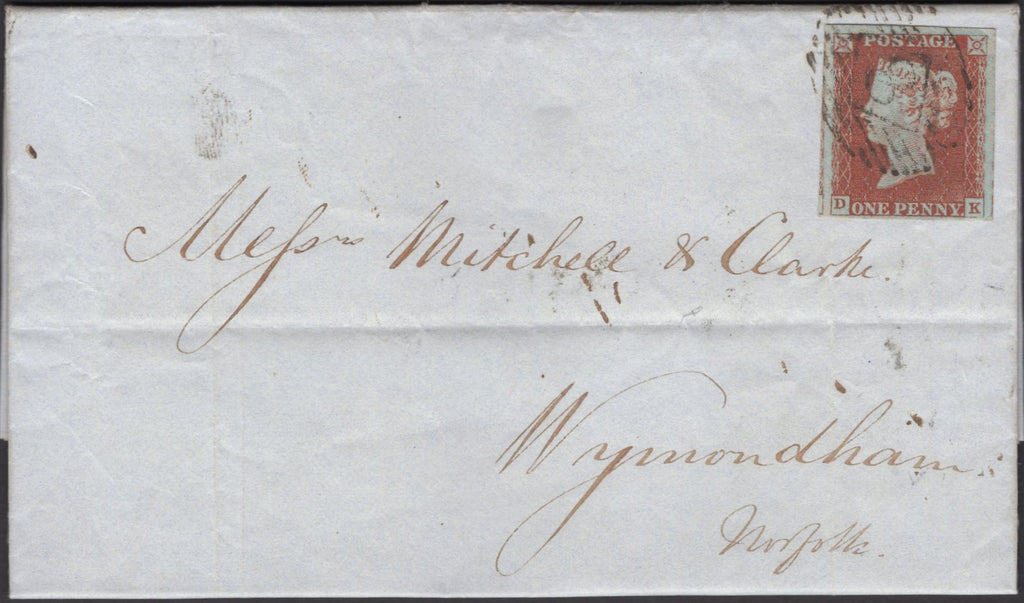 POSTAGE
D ONE PENNY K
Messrs Mitchell & Clarke.
Wymondham
Norfolk.